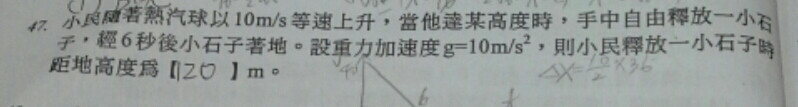 47. 小民隨著熱汽球以10m/s等速上升,當他達某高度時,手中自由釋放一小石
子,經6秒後小石子著地。設重力加速度g=10m/s²,則小民釋放一小石子時
距地高度爲【120】m。
ΔX=10/2×36
6